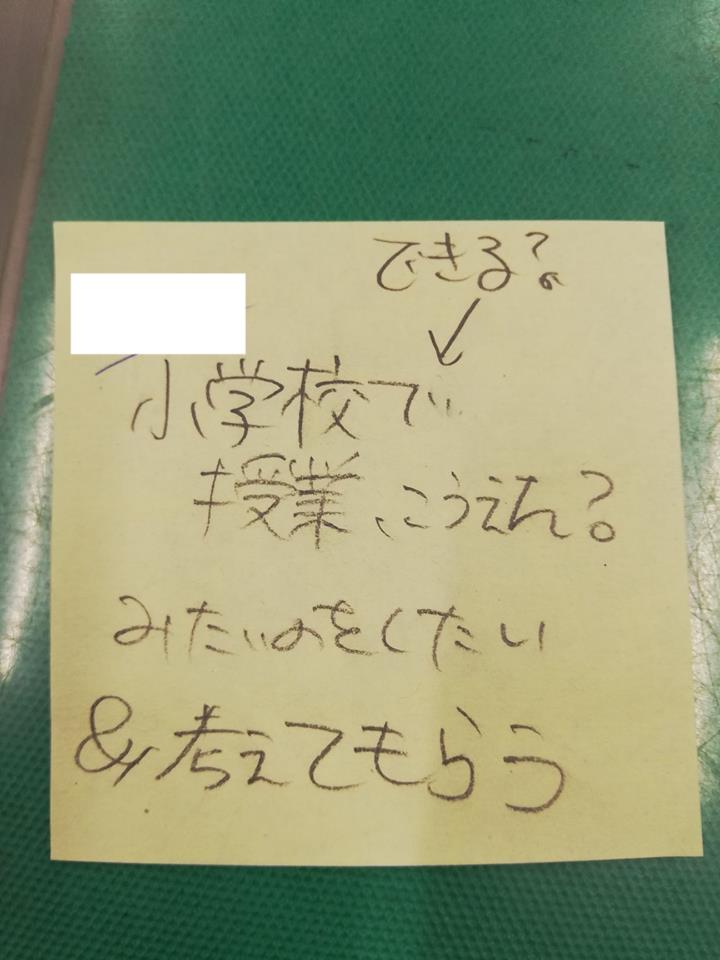 できる？
小学校で
授業、こうえん？
みたいのをしたい
&考えてもらう